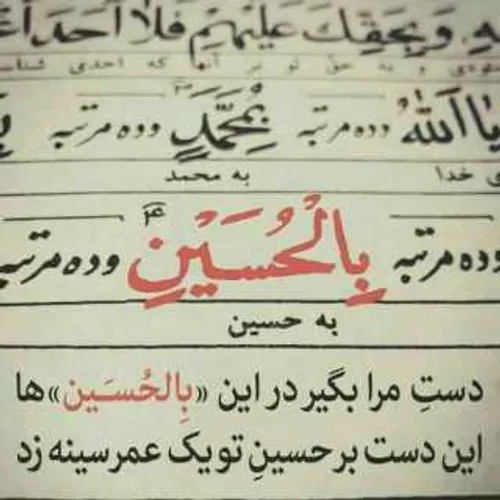 هِ وَ بِحَقِّكَ عَلَيْهِمْ فَلاٰ اَحَدَ
و به حق تو بر آنها که احدی شناسا
یٰا اَللهُ وده مرتبه بِمُحَمَّدٍ وده مرتبه
ی خدا به محمد
وده مرتبه بِالْحُسَيْنِ وده مرتبه
به حسین
دستِ مرا بگیر در این «بِالحُسَین»ها
این دست بر حسینِ تو یک عمر سینه زد